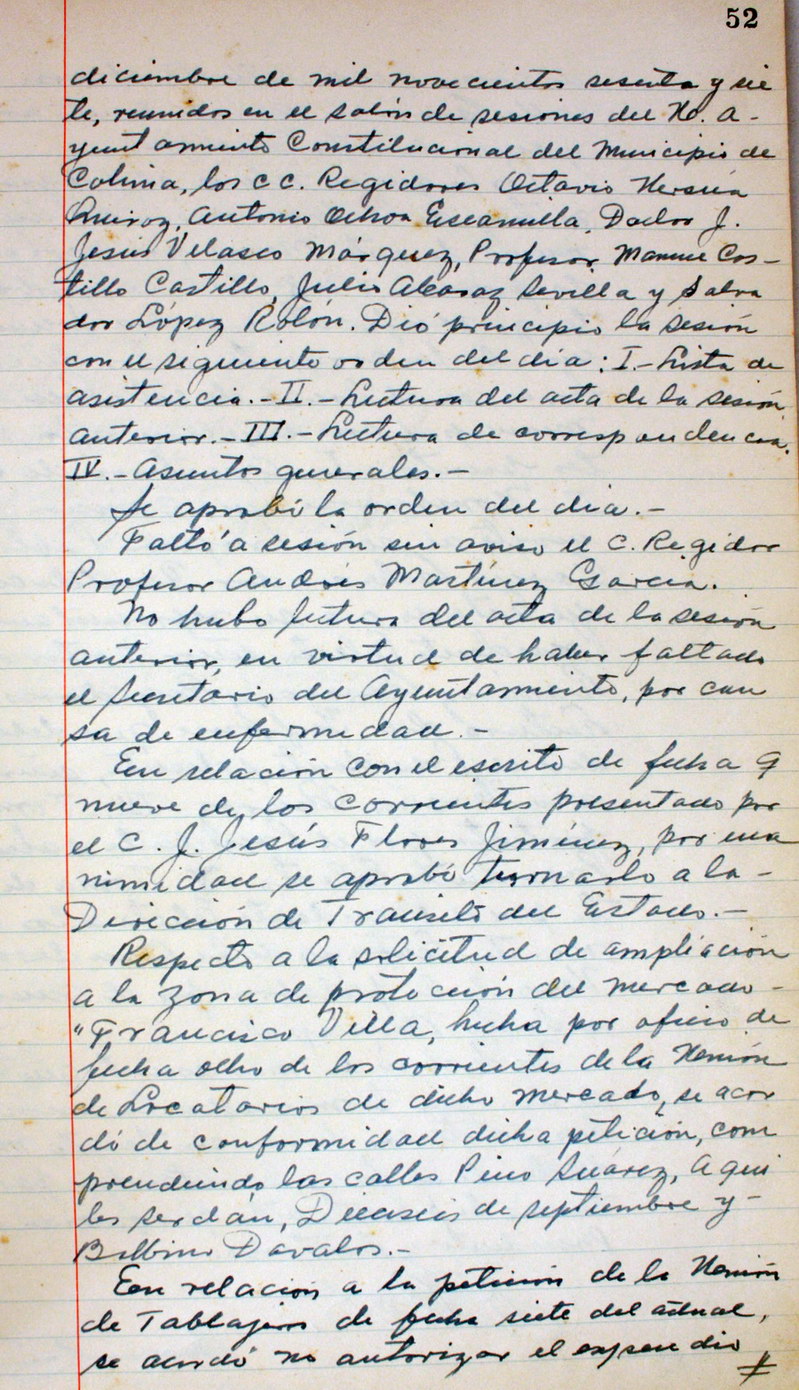 52
diciembre de mil novecientos sesenta y sie
te, reunidos en el salón de sesiones del Ho. A-
yuntamiento Constitucional del Municipio de
Colima, los C C. Regidores Octavio
Quiroz, Antonio Ochoa Escamilla, Doctor J.
Jesús Velasco Márquez, Profesor Manuel Cas-
tillo Castillo, Julio Alcaraz Sevilla y Salva
dor López Rolón. Dió principio la sesión
con el siguiente orden del día: I.- Lista de
asistencia.- II.- Lectura del acta de la sesión
anterior.- III.- Lectura de correspondencia.
IV.- Asuntos generales.-
Se aprobó la orden del día.-
Faltó a sesión sin aviso el C. Regidor
Profesor Andrés Martínez García.
No hubo lectura del acta de la sesión
anterior, en virtud de haber faltado
el Secretario del Ayuntamiento, por cau
sa de enfermedad.-
En relación con el escrito de fecha 9
nueve de los corrientes presentado por
el C. J. Jesús Flores Jiménez, por una
nimidad se aprobó turnarlo a la -
Dirección de Transito del Estado.-
Respecto a la solicitud de ampliación
a la zona de protección del mercado -
"Francisco Villa, hecha por oficio de
fecha ocho de los corrientes de la Unión
de Locatarios de dicho mercado, se acor
dó de conformidad dicha petición, com
prendiendo las calles Pino Suárez, Aqui
les Serdán, Dieciseis de septiembre y -
Balbino Davalos.-
En relación a la petición de la Unión
de Tablajeros de fecha siete del actual,
se acordó no autorizar el expendio